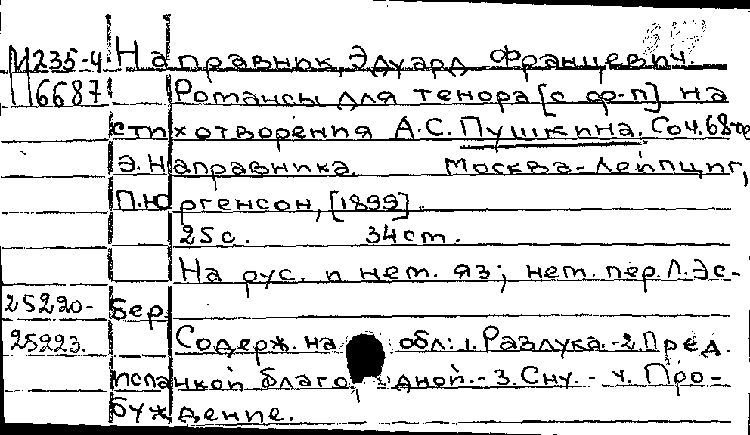 М235-4 Направник, Эдуард Францевич.
6687 Романсы для тенора [с ф-п] на
стихотворения А.С. Пушкина. Соч. 68-ое
Э. Направника. Москва-Лейпциг,
П. Юргенсон, [1899].
25с. 34 cm.
На рус. и нем. яз; нем. пер. Л. Эс-
25220- бер
25223. Содерж. на обл: 1. Разлука.-2. Пред
испанкой благородной.- 3. Сну. - 4. Про-
буждение.